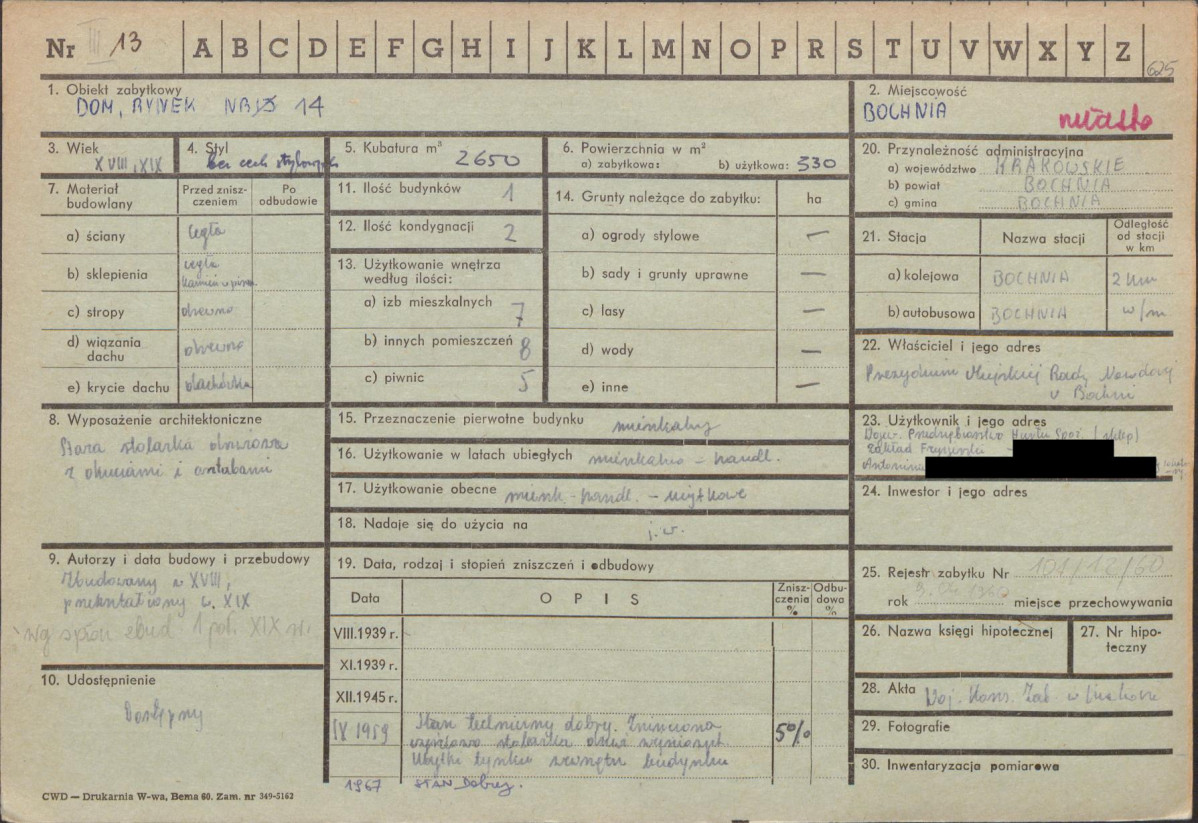 Nr III 13 A B C D E F G H I J K L M N O P R S T U V W X Y Z
625
1. Obiekt zabytkowy
DOM, RYNEK NR 14
2. Miejscowość
BOCHNIA
miasto
3. Wiek
XVIII, XIX
4. Styl
bez cech stylowych
5. Kubatura m³ 2650
6. Powierzchnia w m²
a) zabytkowa: b) użytkowa: 330
7. Materiał budowlany
Przed znisz-
czeniem
Po
odbudowie
a) ściany cegła
b) sklepienia cegła
kamień
c) stropy drewno
d) wiązania
dachu drewno
e) krycie dachu dachówka
8. Wyposażenie architektoniczne
Stara stolarka drzwiowa
z okuciami i antabami
9. Autorzy i data budowy i przebudowy
Zbudowany w XVIII,
przekształcony w. XIX
wg 1 poł. XIX w.
10. Udostępnienie
Dostępny
11. Ilość budynków 1
12. Ilość kondygnacji 2
13. Użytkowanie wnętrza
według ilości:
a) izb mieszkalnych 7
b) innych pomieszczeń 8
c) piwnic 5
14. Grunty należące do zabytku: ha
a) ogrody stylowe —
b) sady i grunty uprawne —
c) lasy —
d) wody —
e) inne —
15. Przeznaczenie pierwotne budynku mieszkalny
16. Użytkowanie w latach ubiegłych mieszkalno - handl.
17. Użytkowanie obecne mieszk. - handl. - użytkowe
18. Nadaje się do użycia na j. w.
19. Data, rodzaj i stopień zniszczeń i odbudowy
Data
OPIS
Znisz-
czenia
%
Odbu-
dowa
%
VIII.1939 r.
XI.1939 r.
XII.1945 r.
IX 1959 Stan techniczny dobry. Zniszczona 5%
częściowo stolarka drzwi
Ubytki tynków zewnątrz budynku
1967 STAN Dobry.
20. Przynależność administracyjna
a) województwo KRAKOWSKIE
b) powiat BOCHNIA
c) gmina BOCHNIA
21. Stacja
Nazwa stacji
Odległość
od stacji
w km
a) kolejowa BOCHNIA 2 km
b) autobusowa BOCHNIA w/m
22. Właściciel i jego adres
Prezydium Miejskiej Rady Narodowej
w Bochni
23. Użytkownik i jego adres
Przedsiębiorstwo Handlu Spoż. (sklep)
Zakład Fryzjerski -
Antonina
24. Inwestor i jego adres
25. Rejestr zabytku Nr 101/12/60
rok 1960 miejsce przechowywania
26. Nazwa księgi hipotecznej
27. Nr hipo-
teczny
28. Akta Woj. Kons. Zab. w Krakowie
29. Fotografie
30. Inwentaryzacja pomiarowa
CWD — Drukarnia W-wa, Bema 60. Zam. nr 349-5162